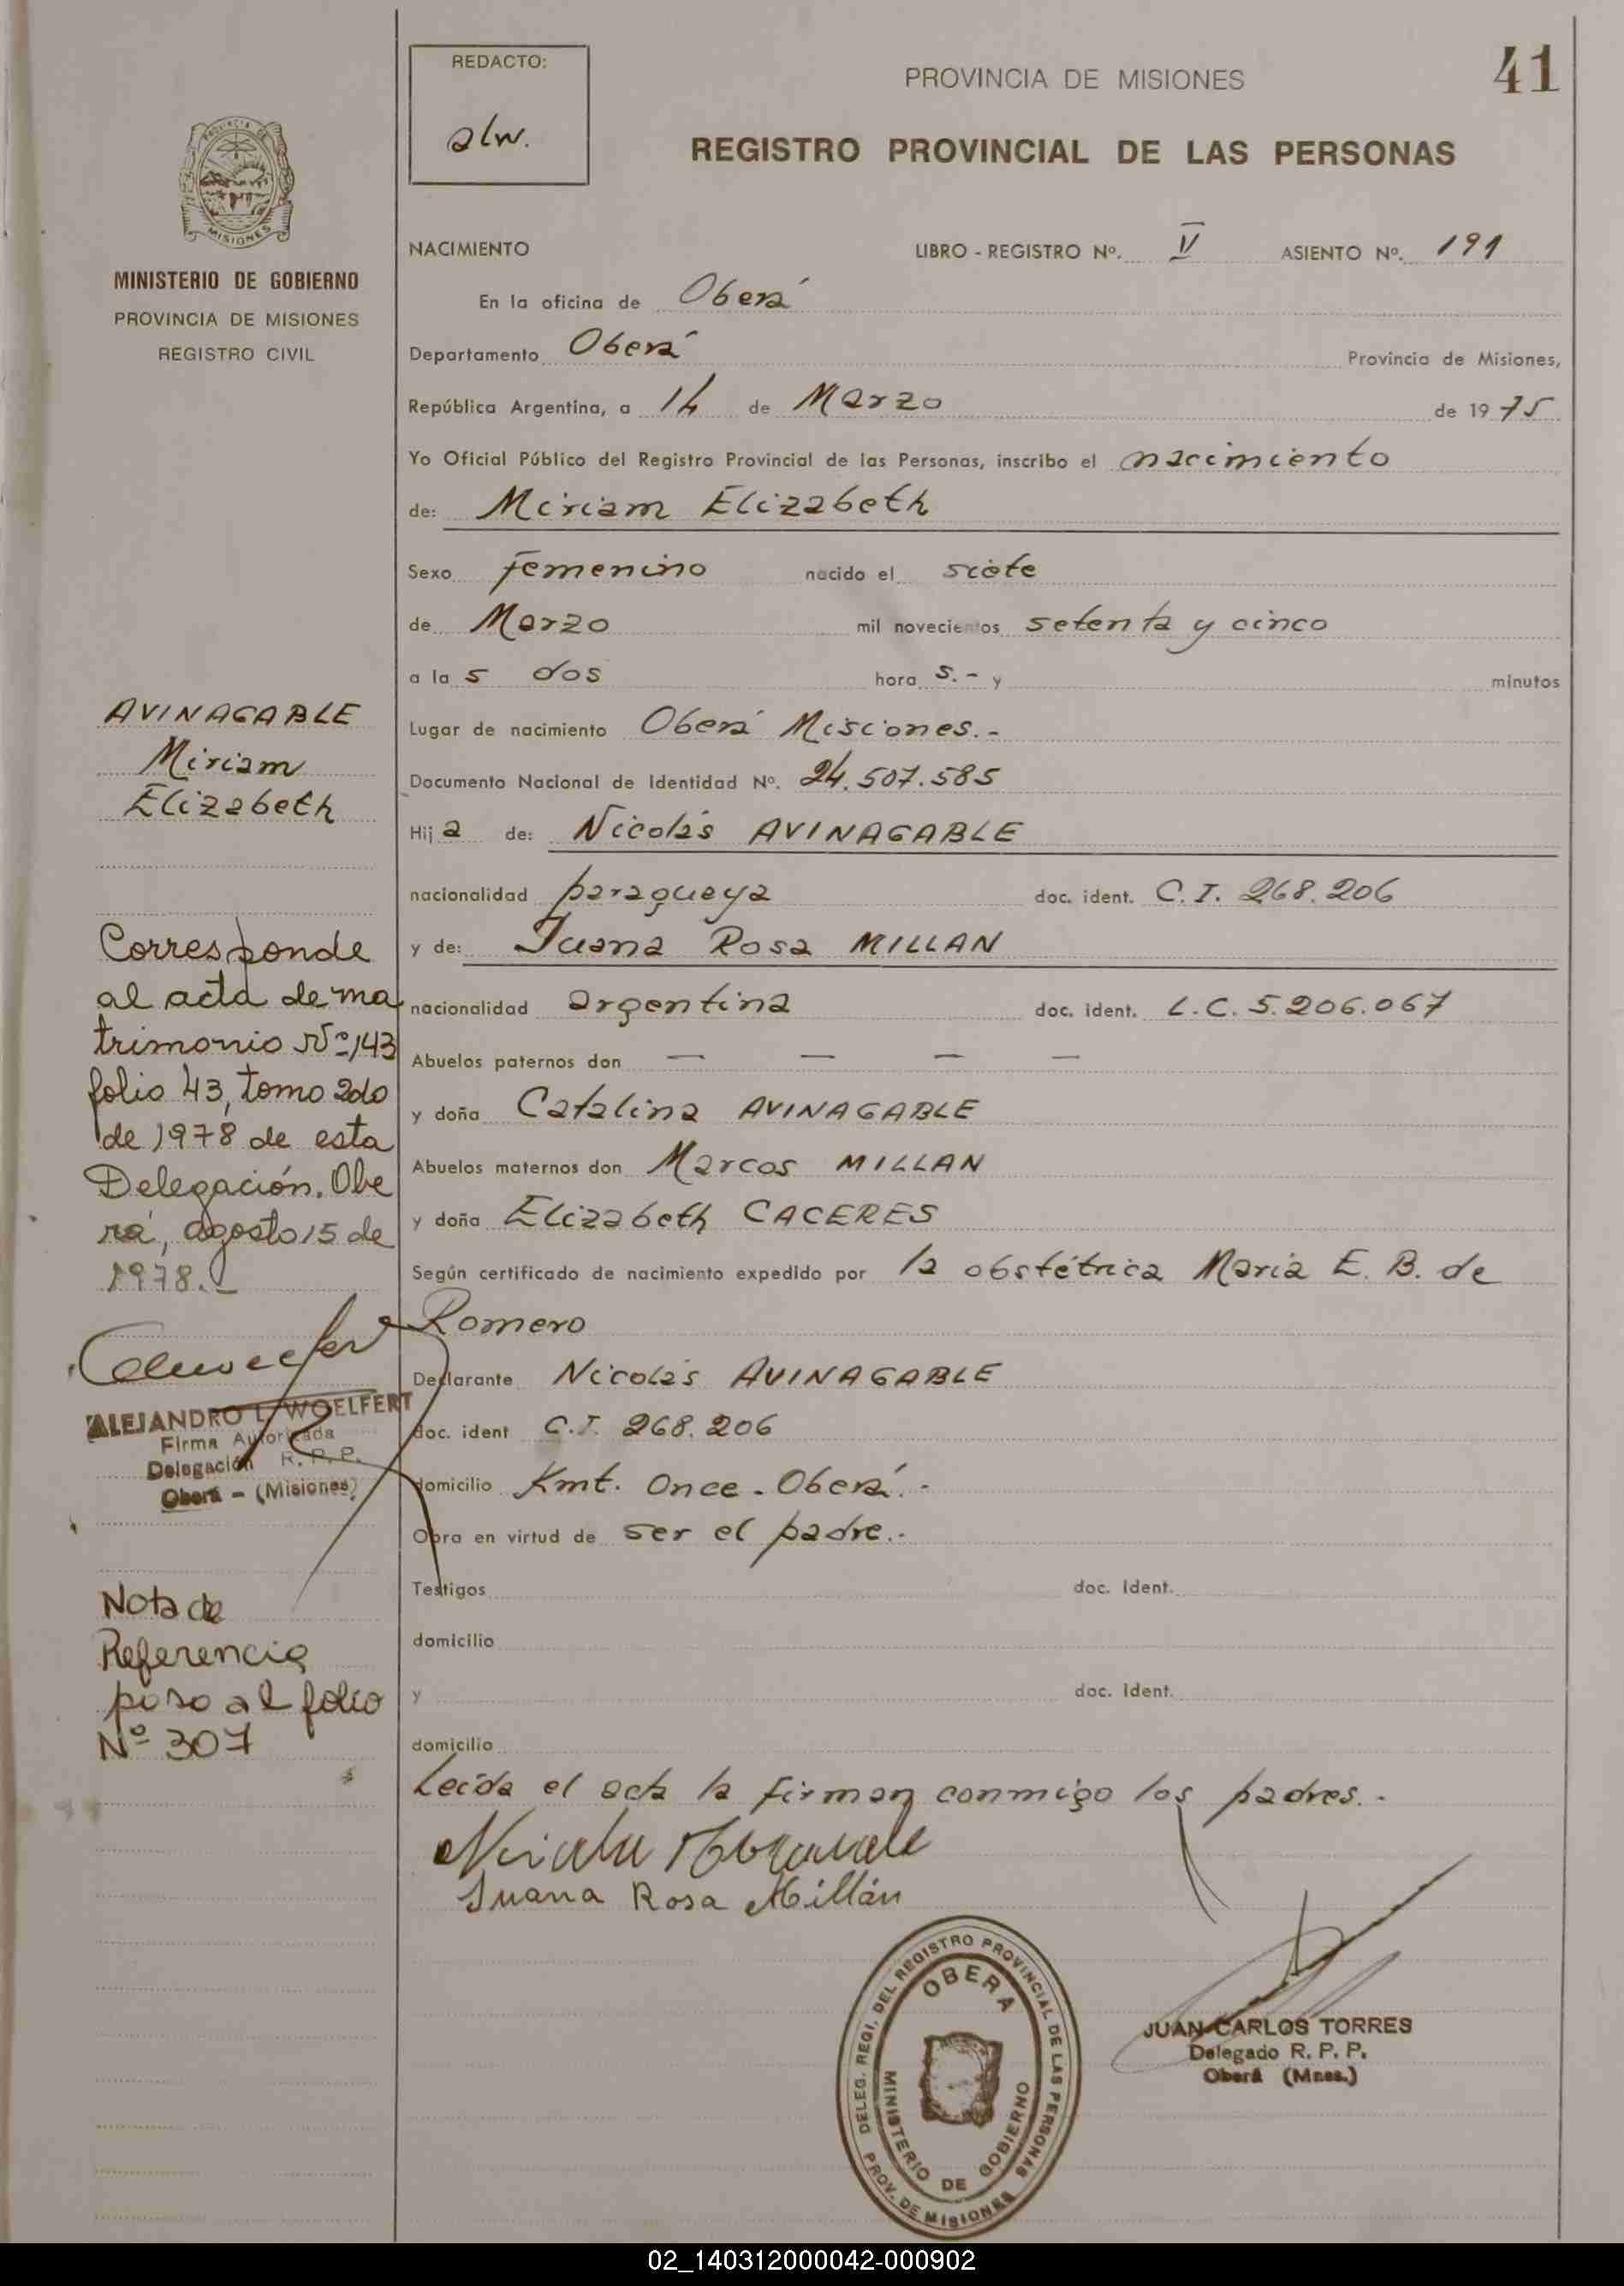 REDACTO:
alw.
PROVINCIA DE MISIONES
41
REGISTRO PROVINCIAL DE LAS PERSONAS
PROVINCIA DE
MISIONES
MINISTERIO DE GOBIERNO
PROVINCIA DE MISIONES
REGISTRO CIVIL
NACIMIENTO LIBRO - REGISTRO Nº. V ASIENTO Nº. 191
En la oficina de Oberá
Departamento Oberá Provincia de Misiones,
República Argentina, a 14 de Marzo de 1975
Yo Oficial Público del Registro Provincial de las Personas, inscribo el nacimiento
de: Miriam Elizabeth
Sexo femenino nacido el siete
de Marzo mil novecientos setenta y cinco
a la s dos hora s.- y minutos
Lugar de nacimiento Oberá Misiones.-
Documento Nacional de Identidad Nº. 24.507.585
Hija de: Nicolás AVINAGABLE
nacionalidad paraguaya doc. ident. C.I. 268.206
y de: Juana Rosa MILLAN
nacionalidad argentina doc. ident. L.C. 5.206.067
Abuelos paternos don — — — —
y doña Catalina AVINAGABLE
Abuelos maternos don Marcos MILLAN
y doña Elizabeth CACERES
Según certificado de nacimiento expedido por la obstétrica Maria E. B. de
Romero
Declarante Nicolás AVINAGABLE
doc. ident C.I. 268.206
domicilio Kmt. Once - Oberá.-
Obra en virtud de ser el padre.-
Testigos doc. ident.
domicilio
y doc. ident.
domicilio
Leída el acta la firman conmigo los padres.-
Juana Rosa Millán
AVINAGABLE
Miriam
Elizabeth
Corresponde
al acta de ma
trimonio Nº 143
folio 43, tomo 2do
de 1978 de esta
Delegación. Obe
rá, agosto 15 de
1978.-
ALEJANDRO L. WOELFERT
Firma Autorizada
Delegación R. P. P.
Oberá - (Misiones)
Nota de
Referencia
paso al folio
Nº 307
DELEG. REGI. DEL REGISTRO PROVINCIAL DE LAS PERSONAS
PROV. DE MISIONES
OBERA
MINISTERIO DE GOBIERNO
JUAN CARLOS TORRES
Delegado R. P. P.
Oberá (Mnes.)
02_140312000042-000902